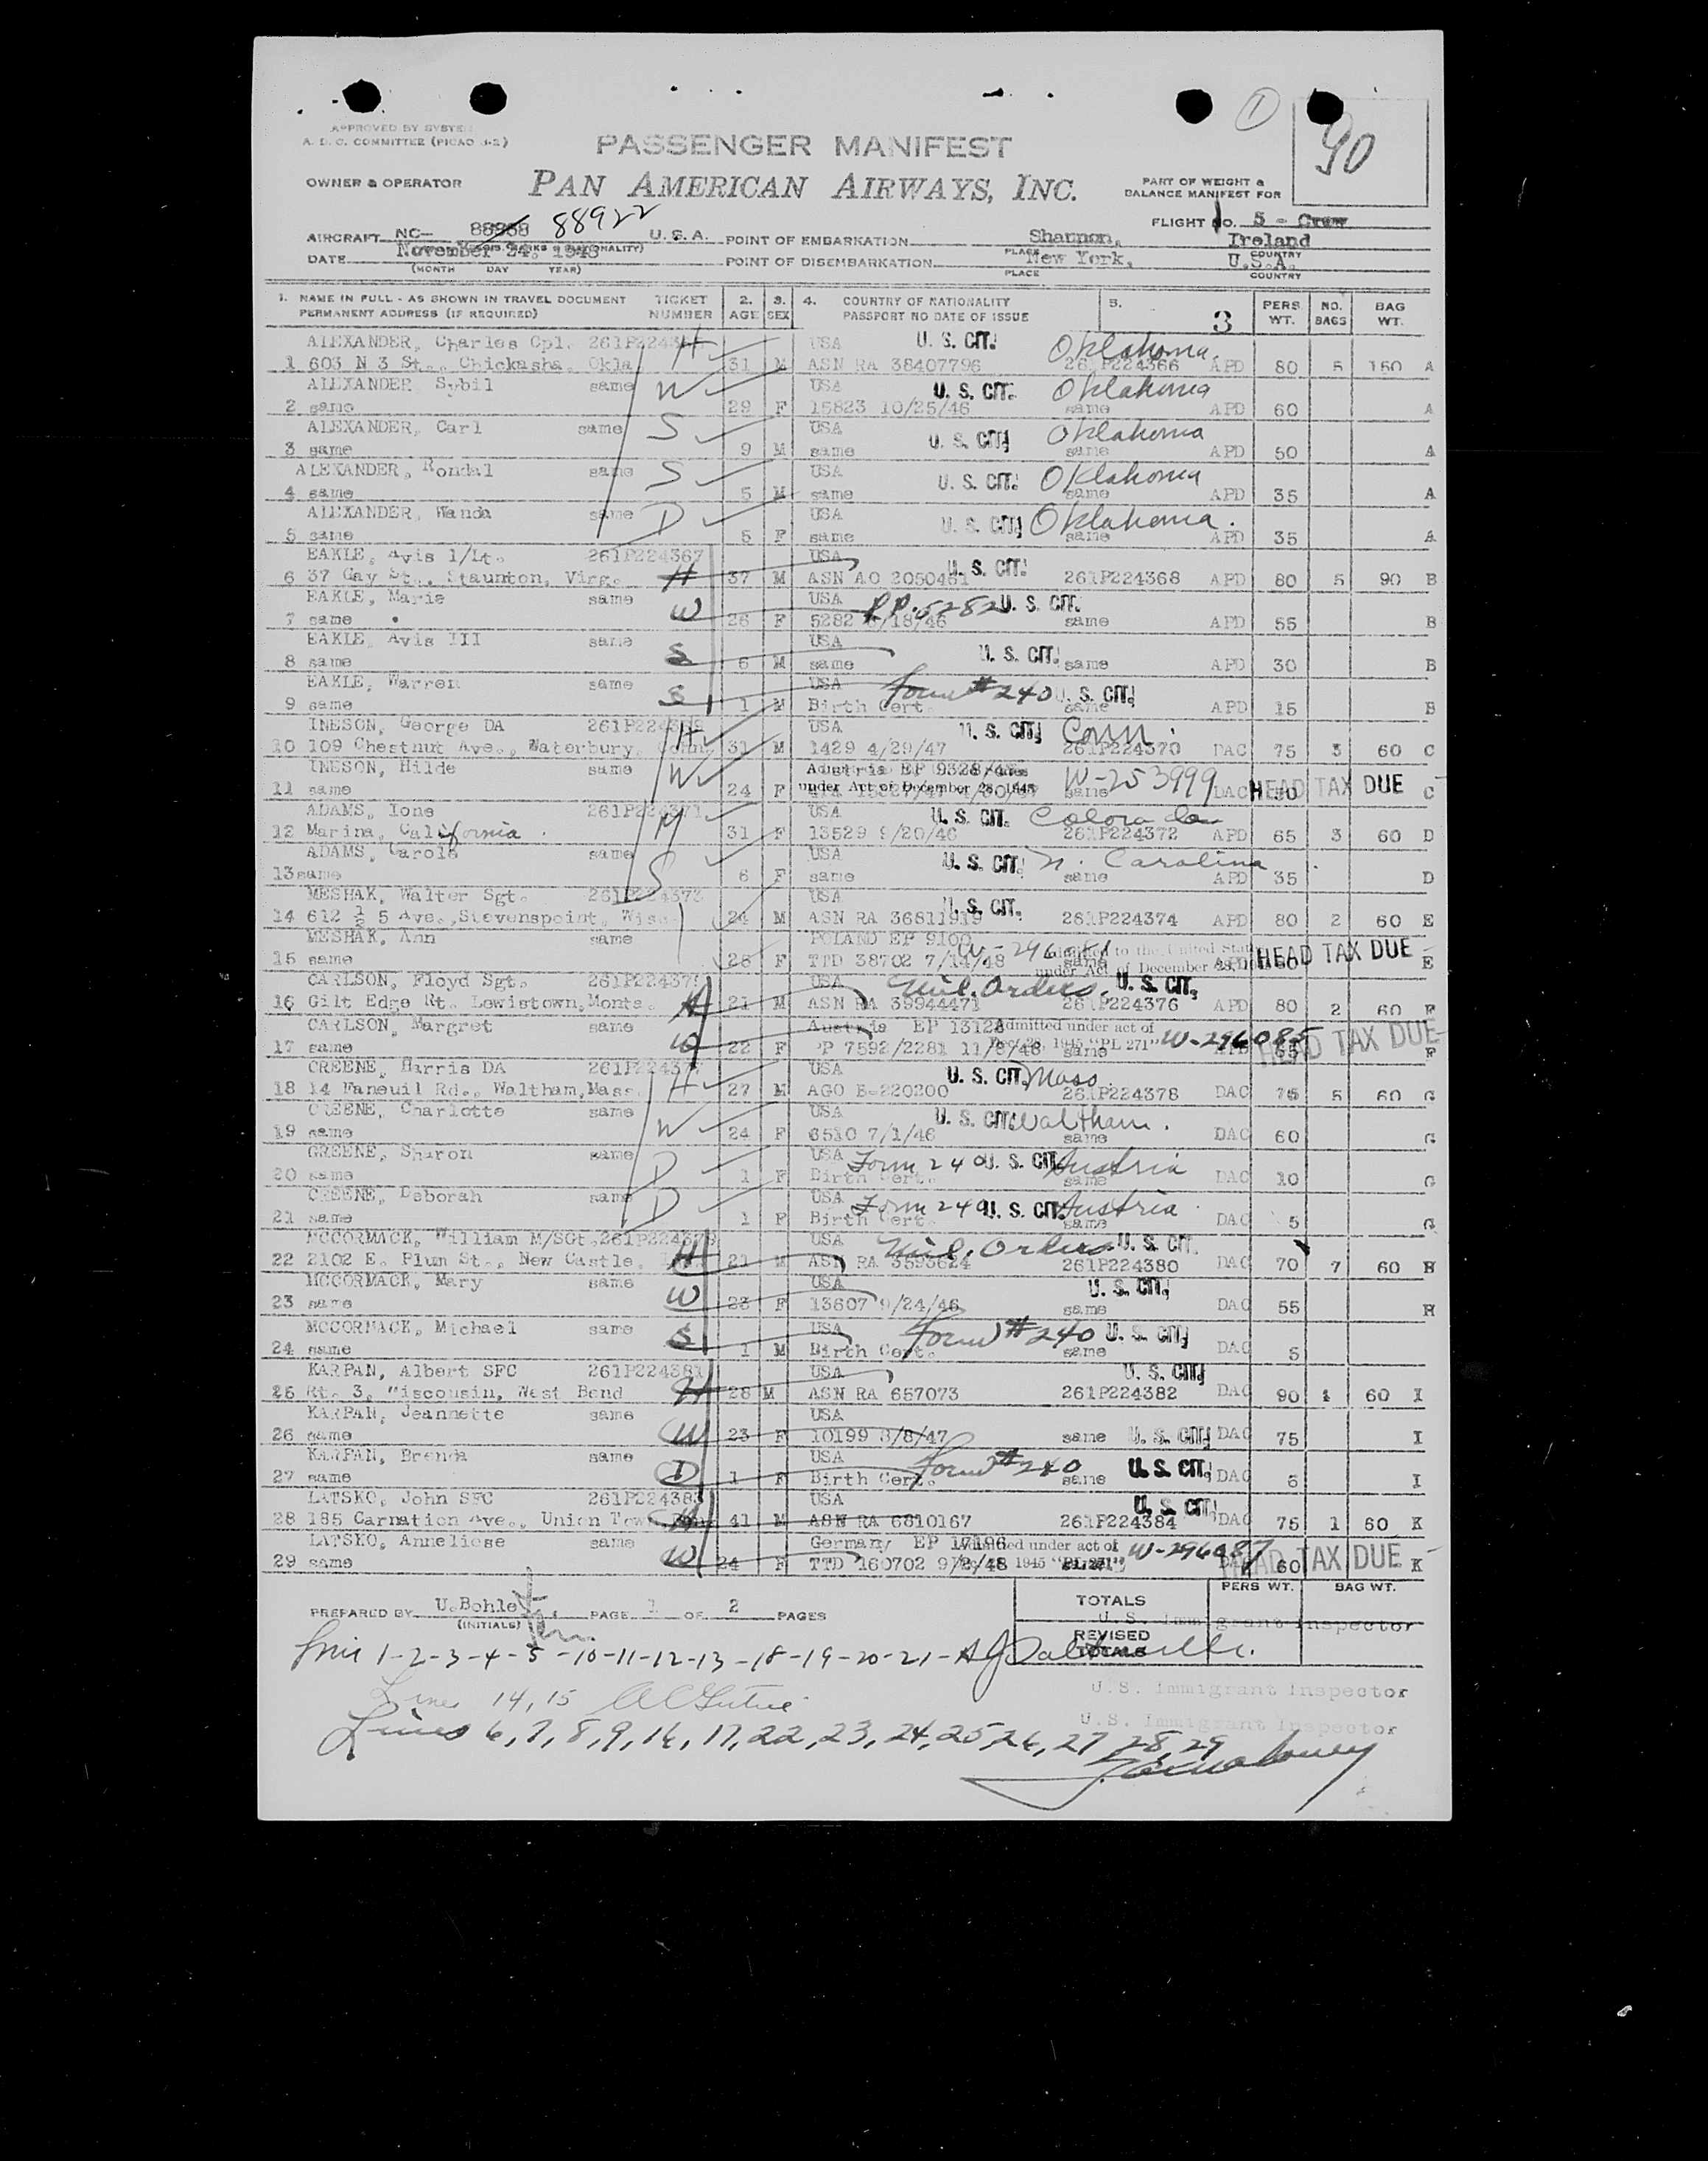 APPROVED BY SYSTEM
A. D. C. COMMITTEE (PICAO J-2)
PASSENGER MANIFEST
1
90
OWNER & OPERATOR PAN AMERICAN AIRWAYS, INC.
PART OF WEIGHT &
BALANCE MANIFEST FOR
FLIGHT NO. 5 - Crew
AIRCRAFT NC- 88922 U.S.A. POINT OF EMBARKATION Shannon, Ireland
PLACE COUNTRY
DATE November 24, 1948 POINT OF DISEMBARKATION New York, U.S.A.
(MONTH DAY YEAR) PLACE COUNTRY
1. NAME IN FULL - AS SHOWN IN TRAVEL DOCUMENT TICKET 2. 3. 4. COUNTRY OF NATIONALITY 5. PERS NO. BAG
PERMANENT ADDRESS (IF REQUIRED) NUMBER AGE SEX PASSPORT NO DATE OF ISSUE 3 WT. BAGS WT.
ALEXANDER, Charles Cpl. H USA U. S. CIT. Oklahoma.
1 603 N 3 St., Chickasha, Okla 31 M ASN RA 38407796 261P224366 APD 80 5 150 A
ALEXANDER Sybil same W USA U. S. CIT. Oklahoma
2 same 29 F 15823 10/25/46 same APD 60 A
ALEXANDER, Carl same S USA U. S. CIT. Oklahoma
3 same 9 M same same APD 50 A
ALEXANDER, Rondal same S USA U. S. CIT. Oklahoma
4 same 5 M same same APD 35 A
ALEXANDER, Wanda same D USA U. S. CIT. Oklahoma.
5 same 5 F same same APD 35 A
EAKLE, Avis 1/Lt. 261P224367 USA U. S. CIT.
6 37 Gay St., Staunton, Virg. H 37 M ASN AO 2050461 261P224368 APD 80 5 90 B
EAKLE, Marie same W USA P.P. 5282 U. S. CIT.
7 same 26 F 5282 6/18/46 same APD 55 B
EAKLE, Avis III same S USA U. S. CIT.
8 same 6 M same same APD 30 B
EAKLE, Warren same S USA Form #240 U. S. CIT.
9 same 1 M Birth Cert. same APD 15 B
INESON, George DA H USA U. S. CIT. Conn.
10 109 Chestnut Ave., Waterbury, Conn. 31 M 1429 4/29/47 261P224370 DAC 75 3 60 C
INESON, Hilde same W Austria EP 9328 W-253999 HEAD TAX DUE
11 same 24 F under Act of December 28, 1945 same DAC C
ADAMS, Ione 261P224371 M USA U. S. CIT. Colorado
12 Marina, California. 31 F 13529 9/20/46 261P224372 APD 65 3 60 D
ADAMS, Carole same S USA U. S. CIT. N. Carolina
13 same 6 F same same APD 35 D
MESHAK, Walter Sgt. 261P224373 USA U. S. CIT.
14 612 ½ 5 Ave., Stevenspoint, Wisc. 24 M ASN RA 36811919 261P224374 APD 80 2 60 E
MESHAK, Ann same POLAND EP 9100 to the United States HEAD TAX DUE
15 same 26 F TTD 38702 7/14/48 same under Act of December 28, E
CARLSON, Floyd Sgt. USA Mil. Orders. U. S. CIT.
16 Gilt Edge Rt. Lewistown, Monta. H 21 M ASN RA 39944471 261P224376 APD 80 2 60 F
CARLSON, Margret same W Austria EP 13128 Admitted under act of W-296085 HEAD TAX DUE
17 same 22 F PP 7592/2281 11/8/48 1945 "PL 271" same F
GREENE, Harris DA H USA U. S. CIT. Mass.
18 14 Faneuil Rd., Waltham, Mass. 27 M AGO B-220200 261P224378 DAC 75 5 60 G
GREENE, Charlotte same W USA U. S. CIT. Waltham.
19 same 24 F 6510 7/1/46 same DAC 60 G
GREENE, Sharon same D USA Form 240 U. S. CIT. Austria
20 same 1 F Birth Cert. same DAC 10 G
GREENE, Deborah same D USA Form 240 U. S. CIT. Austria
21 same 1 F Birth Cert. same DAC 5 G
MCCORMACK, William M/SGt. H USA Mil. Orders. U. S. CIT.
22 2102 E. Plum St., New Castle, 21 M ASN RA 3593624 261P224380 DAC 70 7 60 H
MCCORMACK, Mary same W USA U. S. CIT.
23 same 23 F 13607 9/24/46 same DAC 55 H
MCCORMACK, Michael same S USA Form #240 U. S. CIT.
24 same 1 M Birth Cert. same DAC 5
KARPAN, Albert SFC 261P224381 USA U. S. CIT.
25 Rt. 3, Wiscousin, West Bend H 28 M ASN RA 657073 261P224382 DAC 90 1 60 I
KARPAN, Jeannette same W USA
26 same 23 F 10199 3/8/47 same U. S. CIT. DAC 75 I
KARPAN, Brenda same D USA Form #240
27 same 1 F Birth Cert. same U. S. CIT. DAC 6 I
LATSKO, John SFC 261P224383 USA U. S. CIT.
28 185 Carnation Ave., Union Town H 41 M ASN RA 6810167 261P224384 DAC 75 1 60 K
LATSKO, Anneliese same W Germany EP 17196 under act of W-296087 HEAD TAX DUE
29 same 24 F TTD 160702 9/2/48 1945 "PL 271" 60 K
TOTALS PERS WT. BAG WT.
PREPARED BY U.Bohle PAGE 1 OF 2 PAGES
(INITIALS)
U. S. Immigrant Inspector
REVISED
TOTALS
1-2-3-4-5-10-11-12-13-18-19-20-21-
U.S. Immigrant Inspector
Lines 14, 15
U.S. Immigrant Inspector
Lines 6, 7, 8, 9, 16, 17, 22, 23, 24, 25, 26, 27, 28, 29